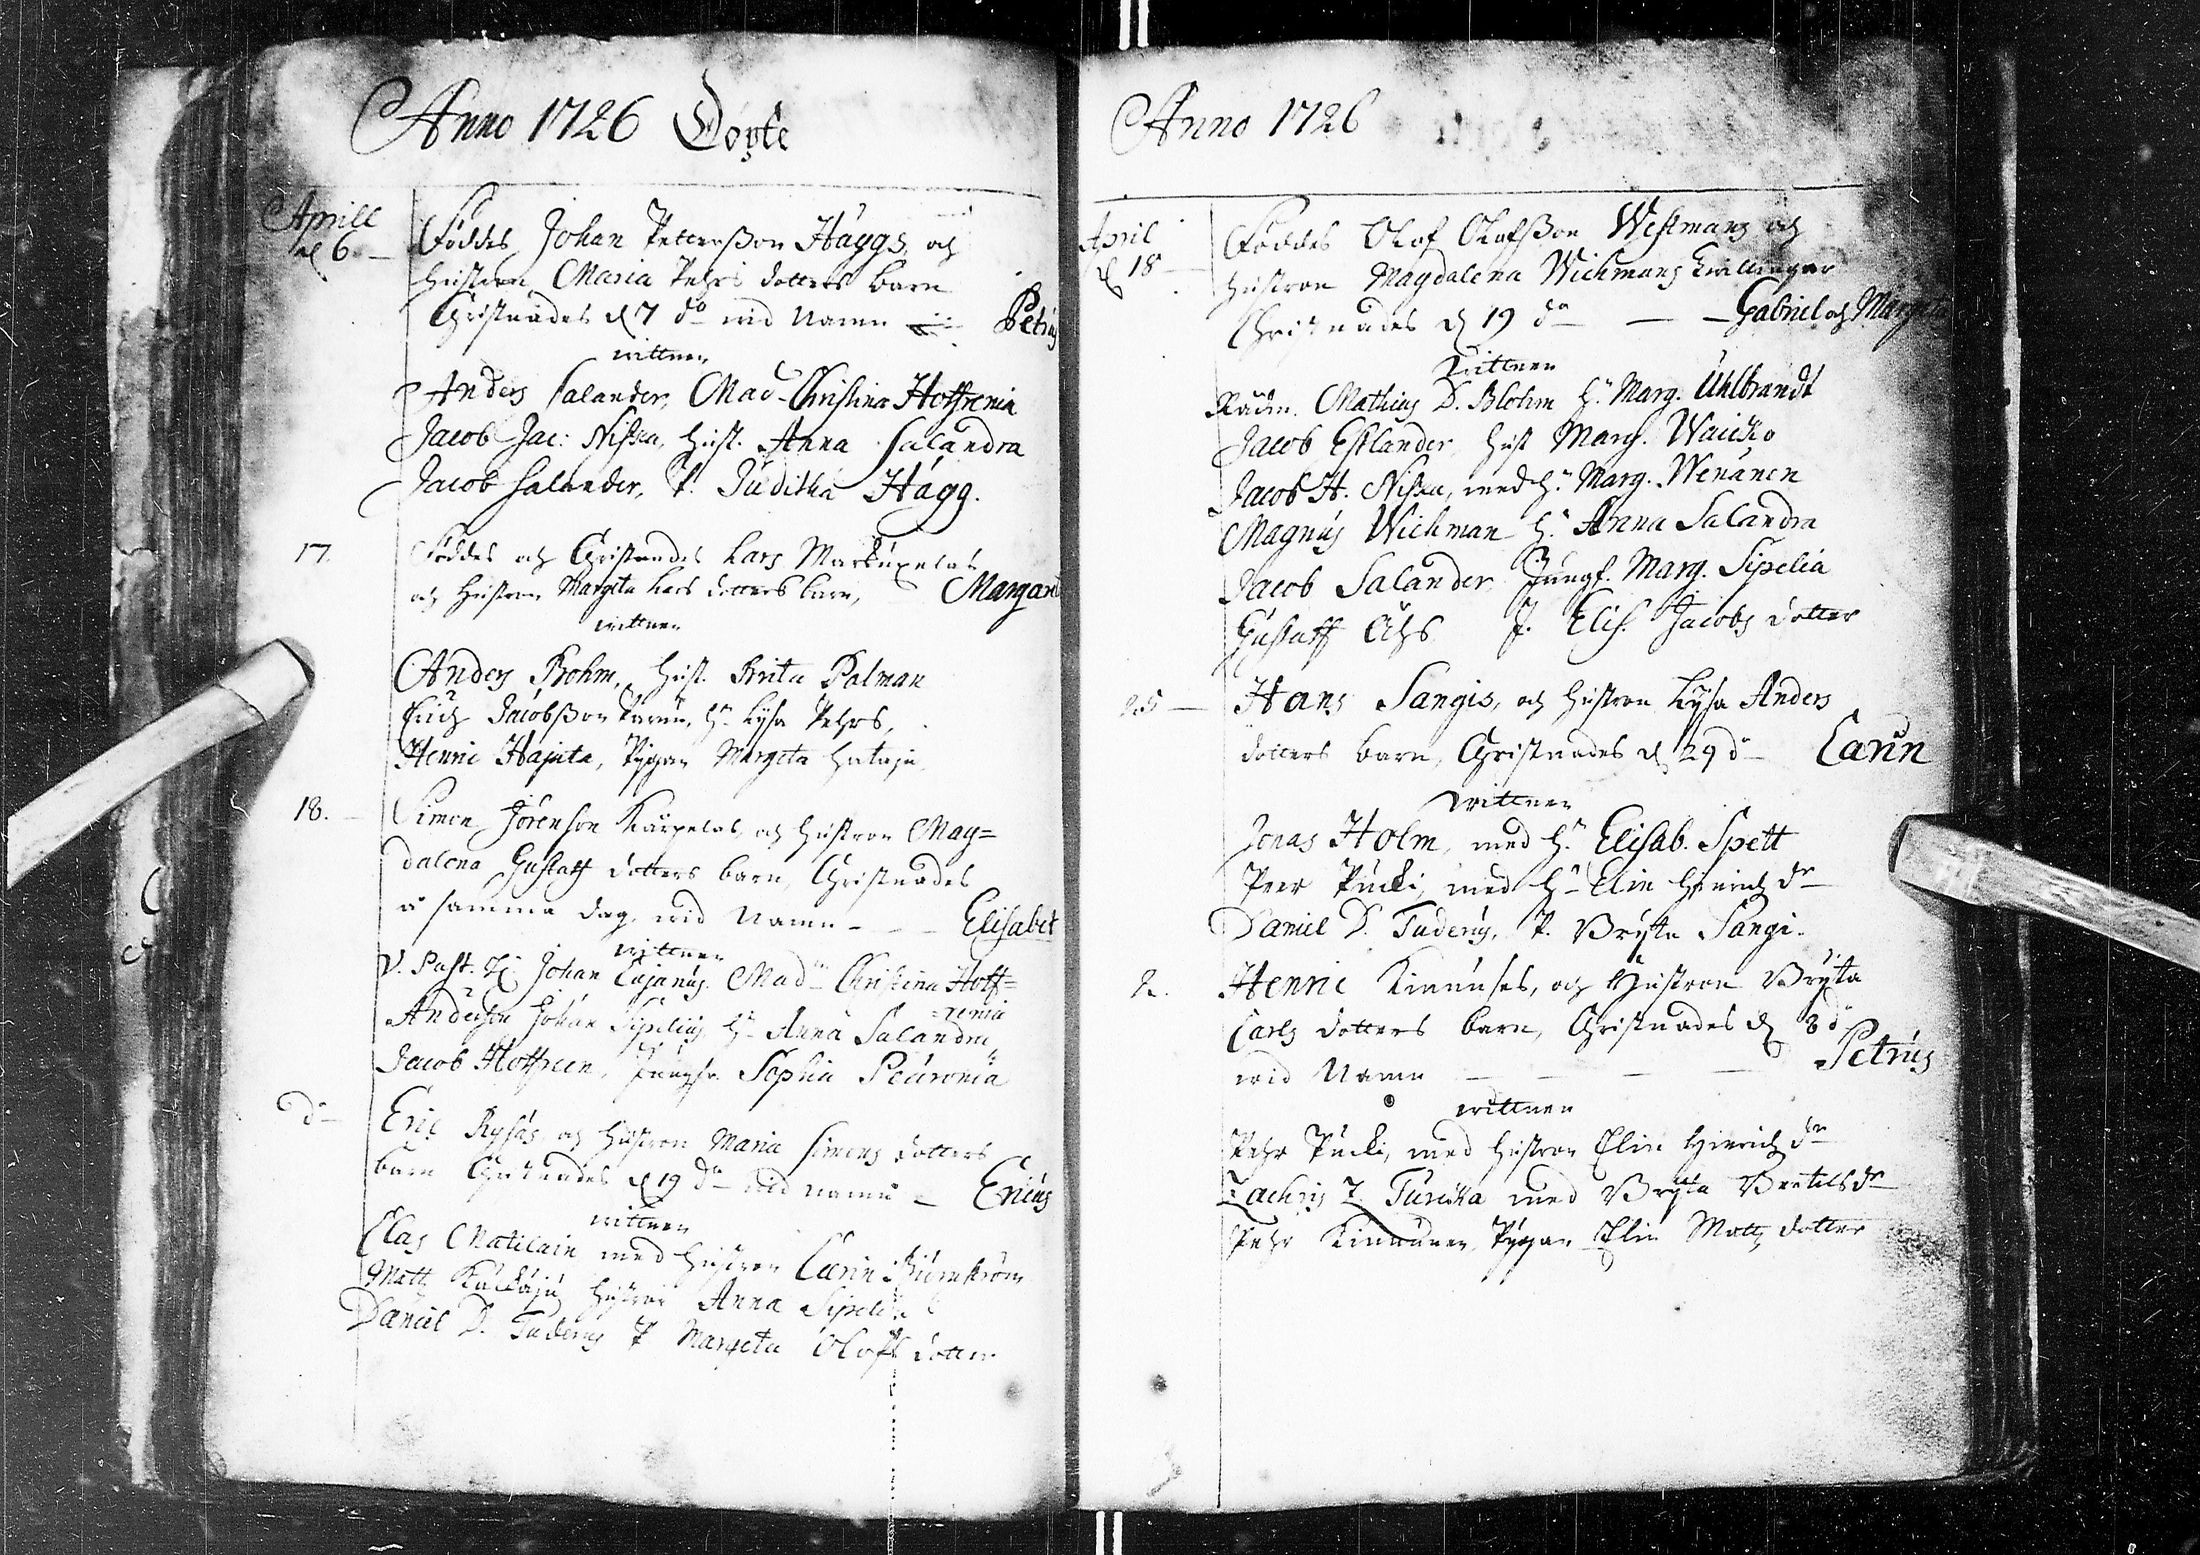 Anno 1726 Döpte
Aprill
d 6. Föddes Johan Pettersson Häggs, och
hustrun Maria Pehrs dotters barn
Christnades d 7 do wid Namn Petrus
wittnen
Anders Salander, Mad. Christina Hoffrenia
Jacob Jac: Niska, hust. Anna Salandra
Jacob Salander, P. Juditha Hägg.
17. Föddes och Christnades Lars
och hustrun Margeta Lars dotters barn, Margaret
wittnen
Anders Bohm, hust. Brita Palman
Erich Jacobsson hu Lysa Pehrs,
Henric Hajuta, Pygan Margeta
18. Simon Jörenson Kärpelas, och hustrun Mag=
dalena Gustaff dotters barn, Christnades
samma dag, wid Namn Elisabet
wittnen
V. Past. H. Johan Cajanus. Mad. Christina Hoff=
=renia
Johan Sipelius, hu Anna Salandra,
Jacob Hoffreen, Jungfr. Sophia
do Eric Rysäs, och hustrun Maria Simons dotters
barn Christnades d 19 do wid namn Ericus
wittnen
Clas Matilain med hustrun Carin Biurström
Matts hustrun Anna
Daniel D. Tuderus P Margeta Olofs dotter
Anno 1726
April
d 18 Föddes Olof Olofsson Westmans och
hustrun Magdalena Wichmans twillingar
Christnades d 19 do Gabriel och Margeta
Wittnen
Rådm. Mathias D. Blohm hu. Marg. Uhlbrandt
Jacob Estlander hust Marg. Waicko
Jacob H. Niska, med hu. Marg. Wenänen
Magnus Wichman hu. Anna Salandra
Jacob Salander Jungf. Marg. Sipelia
Gustaff P. Elis. Jacobs dotter
25 Hans Sangis, och hustrun Lysa Anders
dotters barn, Christnades d. 29 do Carin
wittnen
Jonas Holm, med hu. Elisab. Spett
Peer Pucki, med hu Elin Hinrich dr
Daniel D. Tuderus, P. Bryta Sangi.
2. Henric Kinnuses, och Hustrun Bryta
Carls dotters barn, Christnades d 8 do
wid Namn Petrus
wittnen
Pehr Pucki, med hustrun Elin Hinrich dr
Zachris Z. Turicka med Bryta Bertels dr
Pehr Kinnunen, Pygan Elin Matts dotter